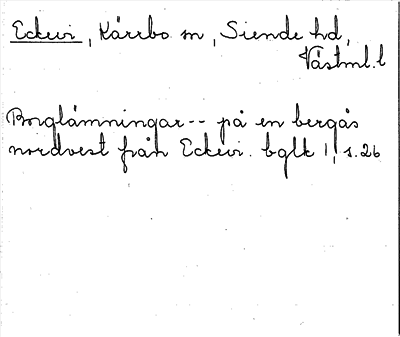 Eckevi, Kärrbo sn, Siende hd,
Västml. l
Borglämningar -- på en bergås
nordvest från Eckevi. bglk 1, s. 26